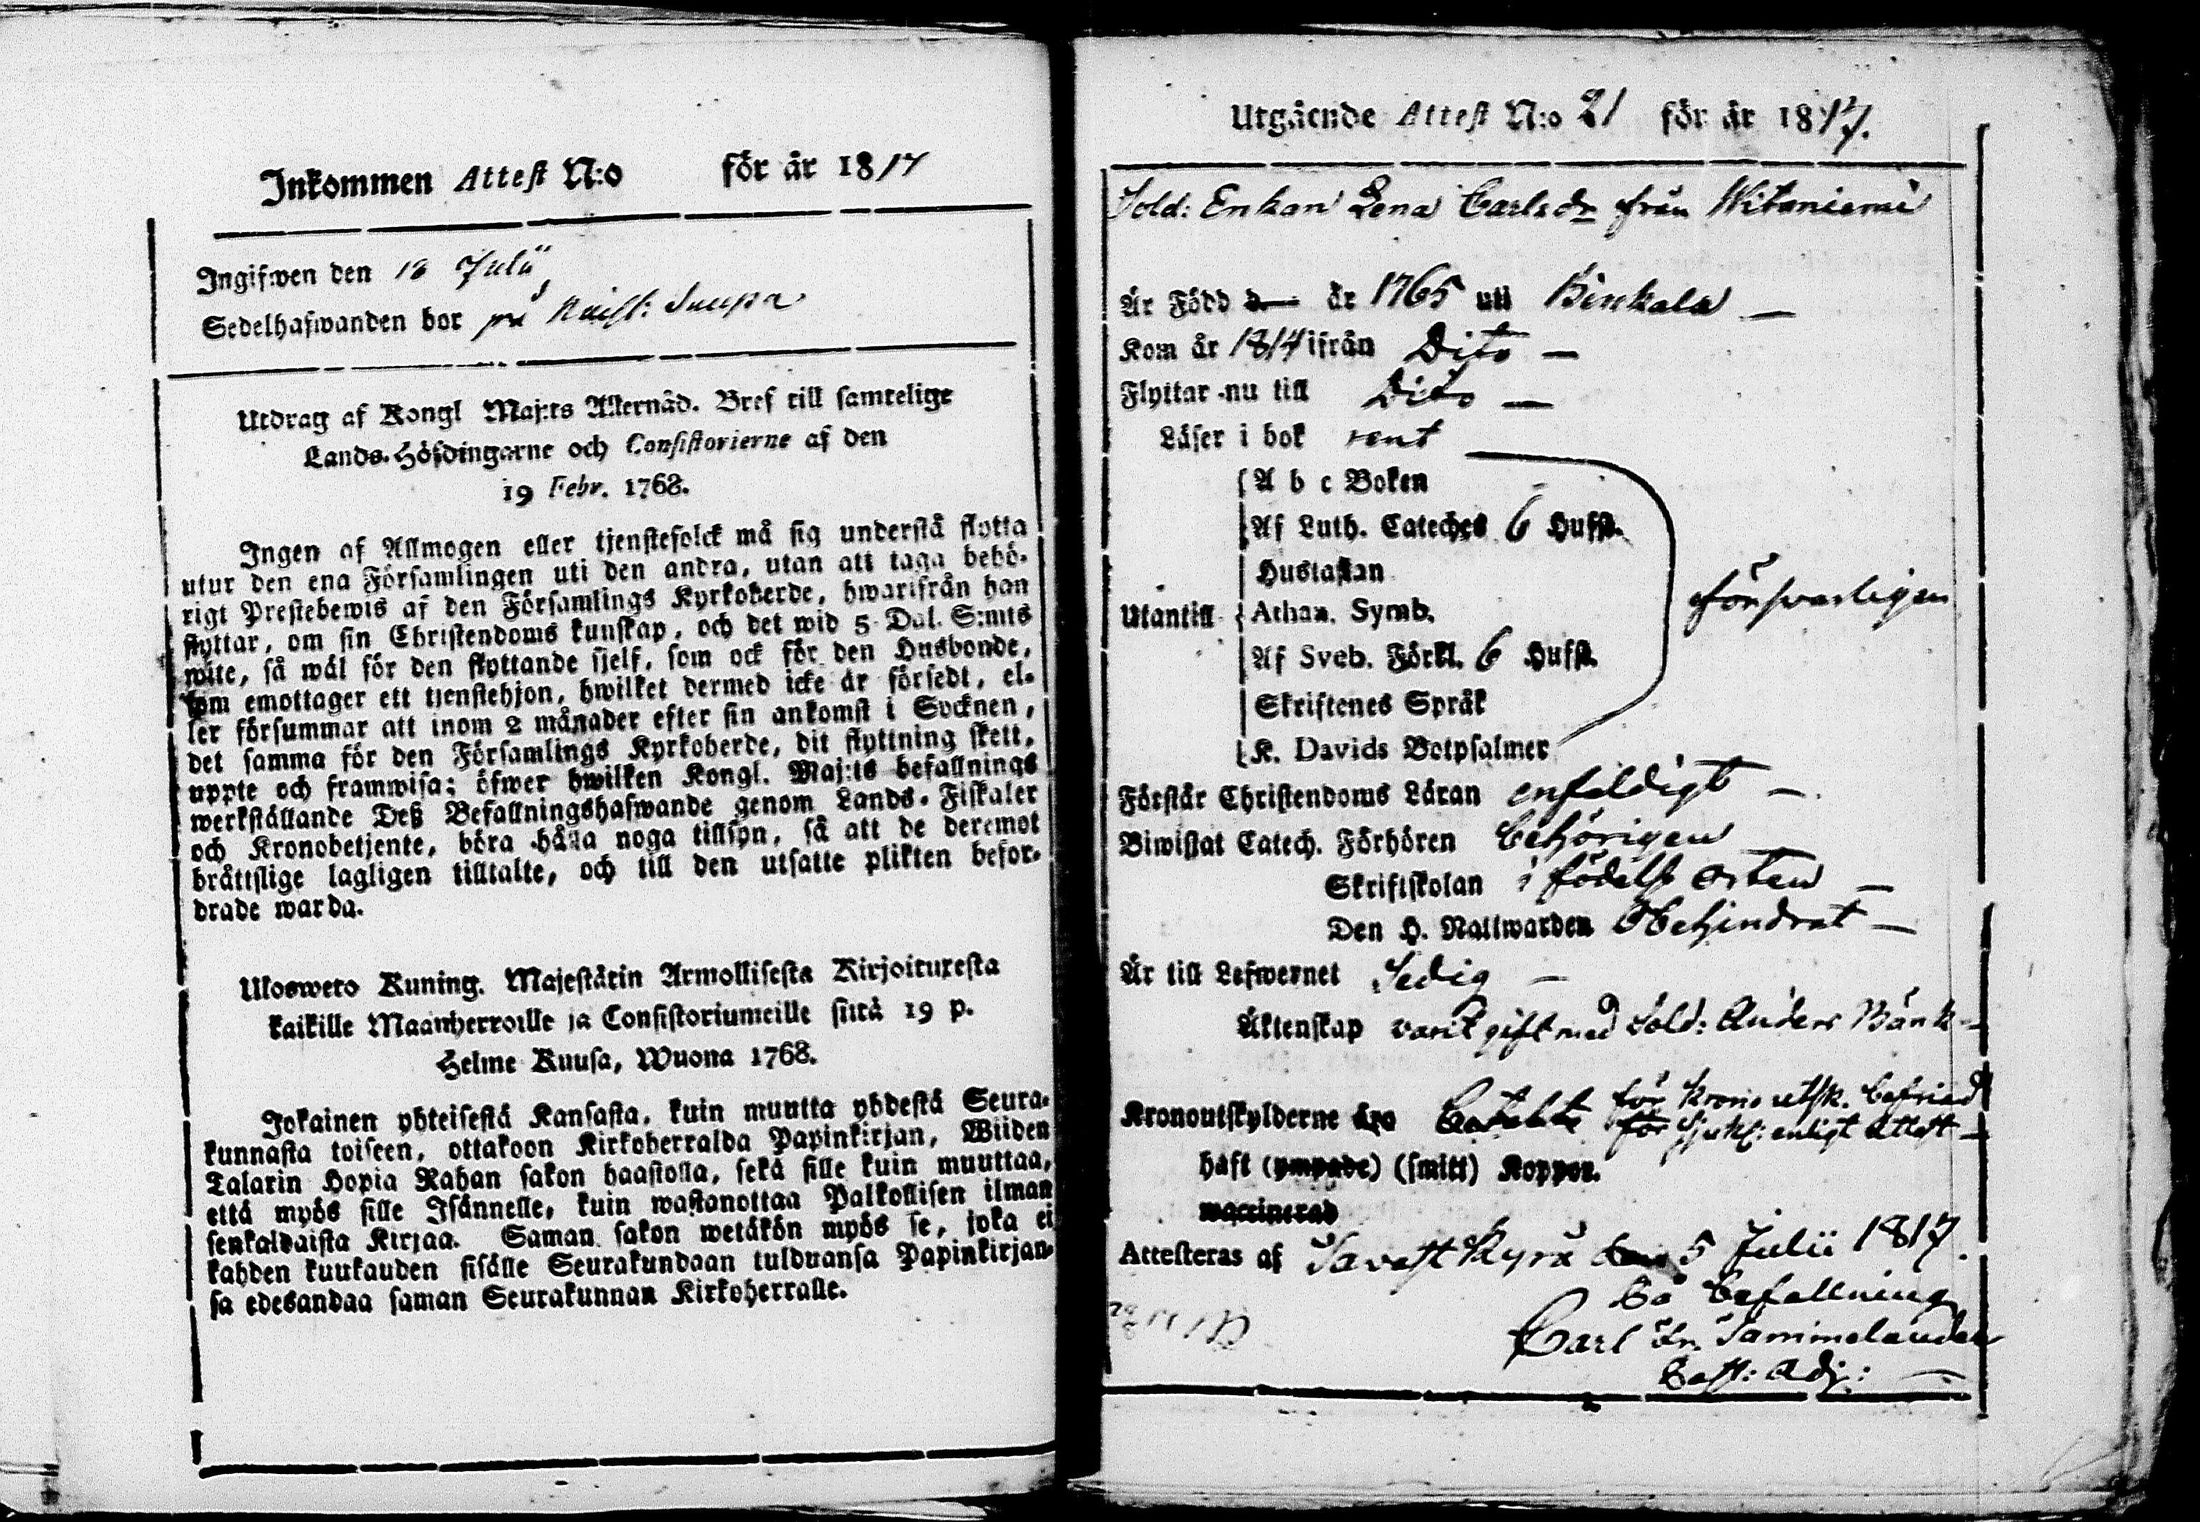 Inkommen Attest N:o för år 1817
Ingifwen den 18 Julii
Sedelhafwanden bor på Suupa
Utdrag af Kongl Maj:ts Allernåd. Bref till samtelige
Lands-Höfdingarne och Consistorierne af den
19 Febr. 1768.
Ingen af Allmogen eller tjenstefolck må sig understå flotta
utur den ena Församlingen uti den andra, utan att taga behö-
rigt Prestebewis af den Församlings Kyrkoherde, hwarifrån han
flyttar, om sin Christendoms kunskap, och det wid 5 Dal. S:mts
wite, så wäl för den flyttande sjelf, som ock för den Husbonde,
som emottager ett tjenstehjon, hwilket dermed icke är försedt, el-
ler försummar att inom 2 månader efter sin ankomst i Socknen,
det samma för den Församlings Kyrkoherde, dit flyttning skett,
uppte och framwisa; öfwer hwilken Kongl. Maj:ts befallnings
werkställande Deß Befallningshafwande genom Lands-Fiskaler
och Kronobetjente, böra hålla noga tillsyn, så att de deremot
bråttslige lagligen tilltalte, och till den utsatte plikten befor-
drade warda.
Ulosweto Kuning. Majestätin Armollisesta Kirjoituxesta
kaikille Maanherroille ja Consistoriumeille siitä 19 p.
Helme Kuusa, Wuona 1768.
Jokainen yhteisestä Kansasta, kuin muutta yhdestä Seura-
kunnasta toiseen, ottakoon Kirkoherralda Papinkirjan, Wiiden
Talarin Hopia Rahan sakon haastolla, sekä sille kuin muuttaa,
että myös sille Isännelle, kuin wastanottaa Palkollisen ilman
senkaldaista Kirjaa. Saman sakon wetäkön myös se, joka ei
kahden kuukauden sisälle Seurakundaan tulduansa Papinkirjan-
sa edesandaa saman Seurakunnan Kirkoherralle.
Utgående Attest N:o 21 för år 1817.
Sold: Enkan Lena Carlsdr från Witaniemi
Är Född d— år 1765 uti Birkala —
Kom år 1814 ifrån Dito —
Flyttar nu till Dito —
Läser i bok rent
A b c Boken
Af Luth. Cateches 6 Hufst.
Hustaflan
Utantill Athan. Symb. försvarligen
Af Sveb. Förkl. 6 Hufst.
Skriftenes Språk
K. Davids Botpsalmer
Förstår Christendoms Läran enfaldigt —
Biwistat Catech. Förhören behörigen
Skriftskolan i födelse orten —
Den H. Nattwarden Obehindrat —
Är till Lefwernet Sedig —
Äktenskap varit gift med Sold: Anders Bänk —
för Krono utsk. befriad
Kronoutskylderne äro för enligt Attest —
haft (ympade) (smitt) Koppor.
waccinerad
Attesteras af Tavast Kyrö den 5 Julii 1817.
På befallning
Carl Fr. Sammelander
Past: Adj: —